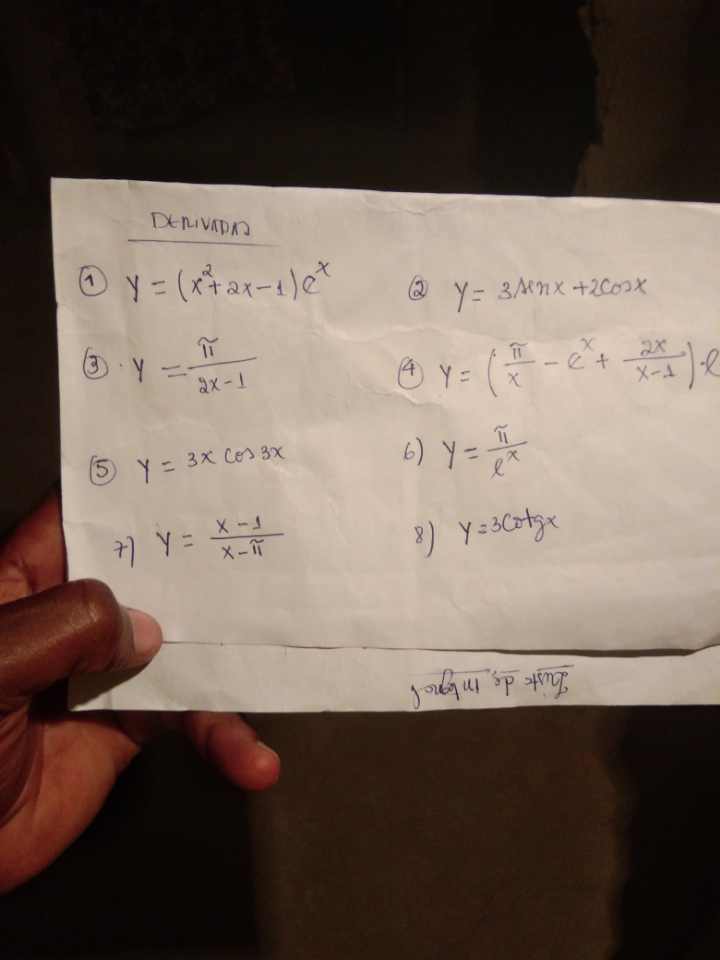 DERIVADAS
① y = (x²+2x-1)e^x
② y = 3senx+2cosx
③ y = π/(2x-1)
④ y = (π/x - e^x + 2x/(x-1))·e
⑤ y = 3x cos3x
6) y = π/e^x
7) y = (x-1)/(x-π)
8) y=3Cotgx
Lista de integral